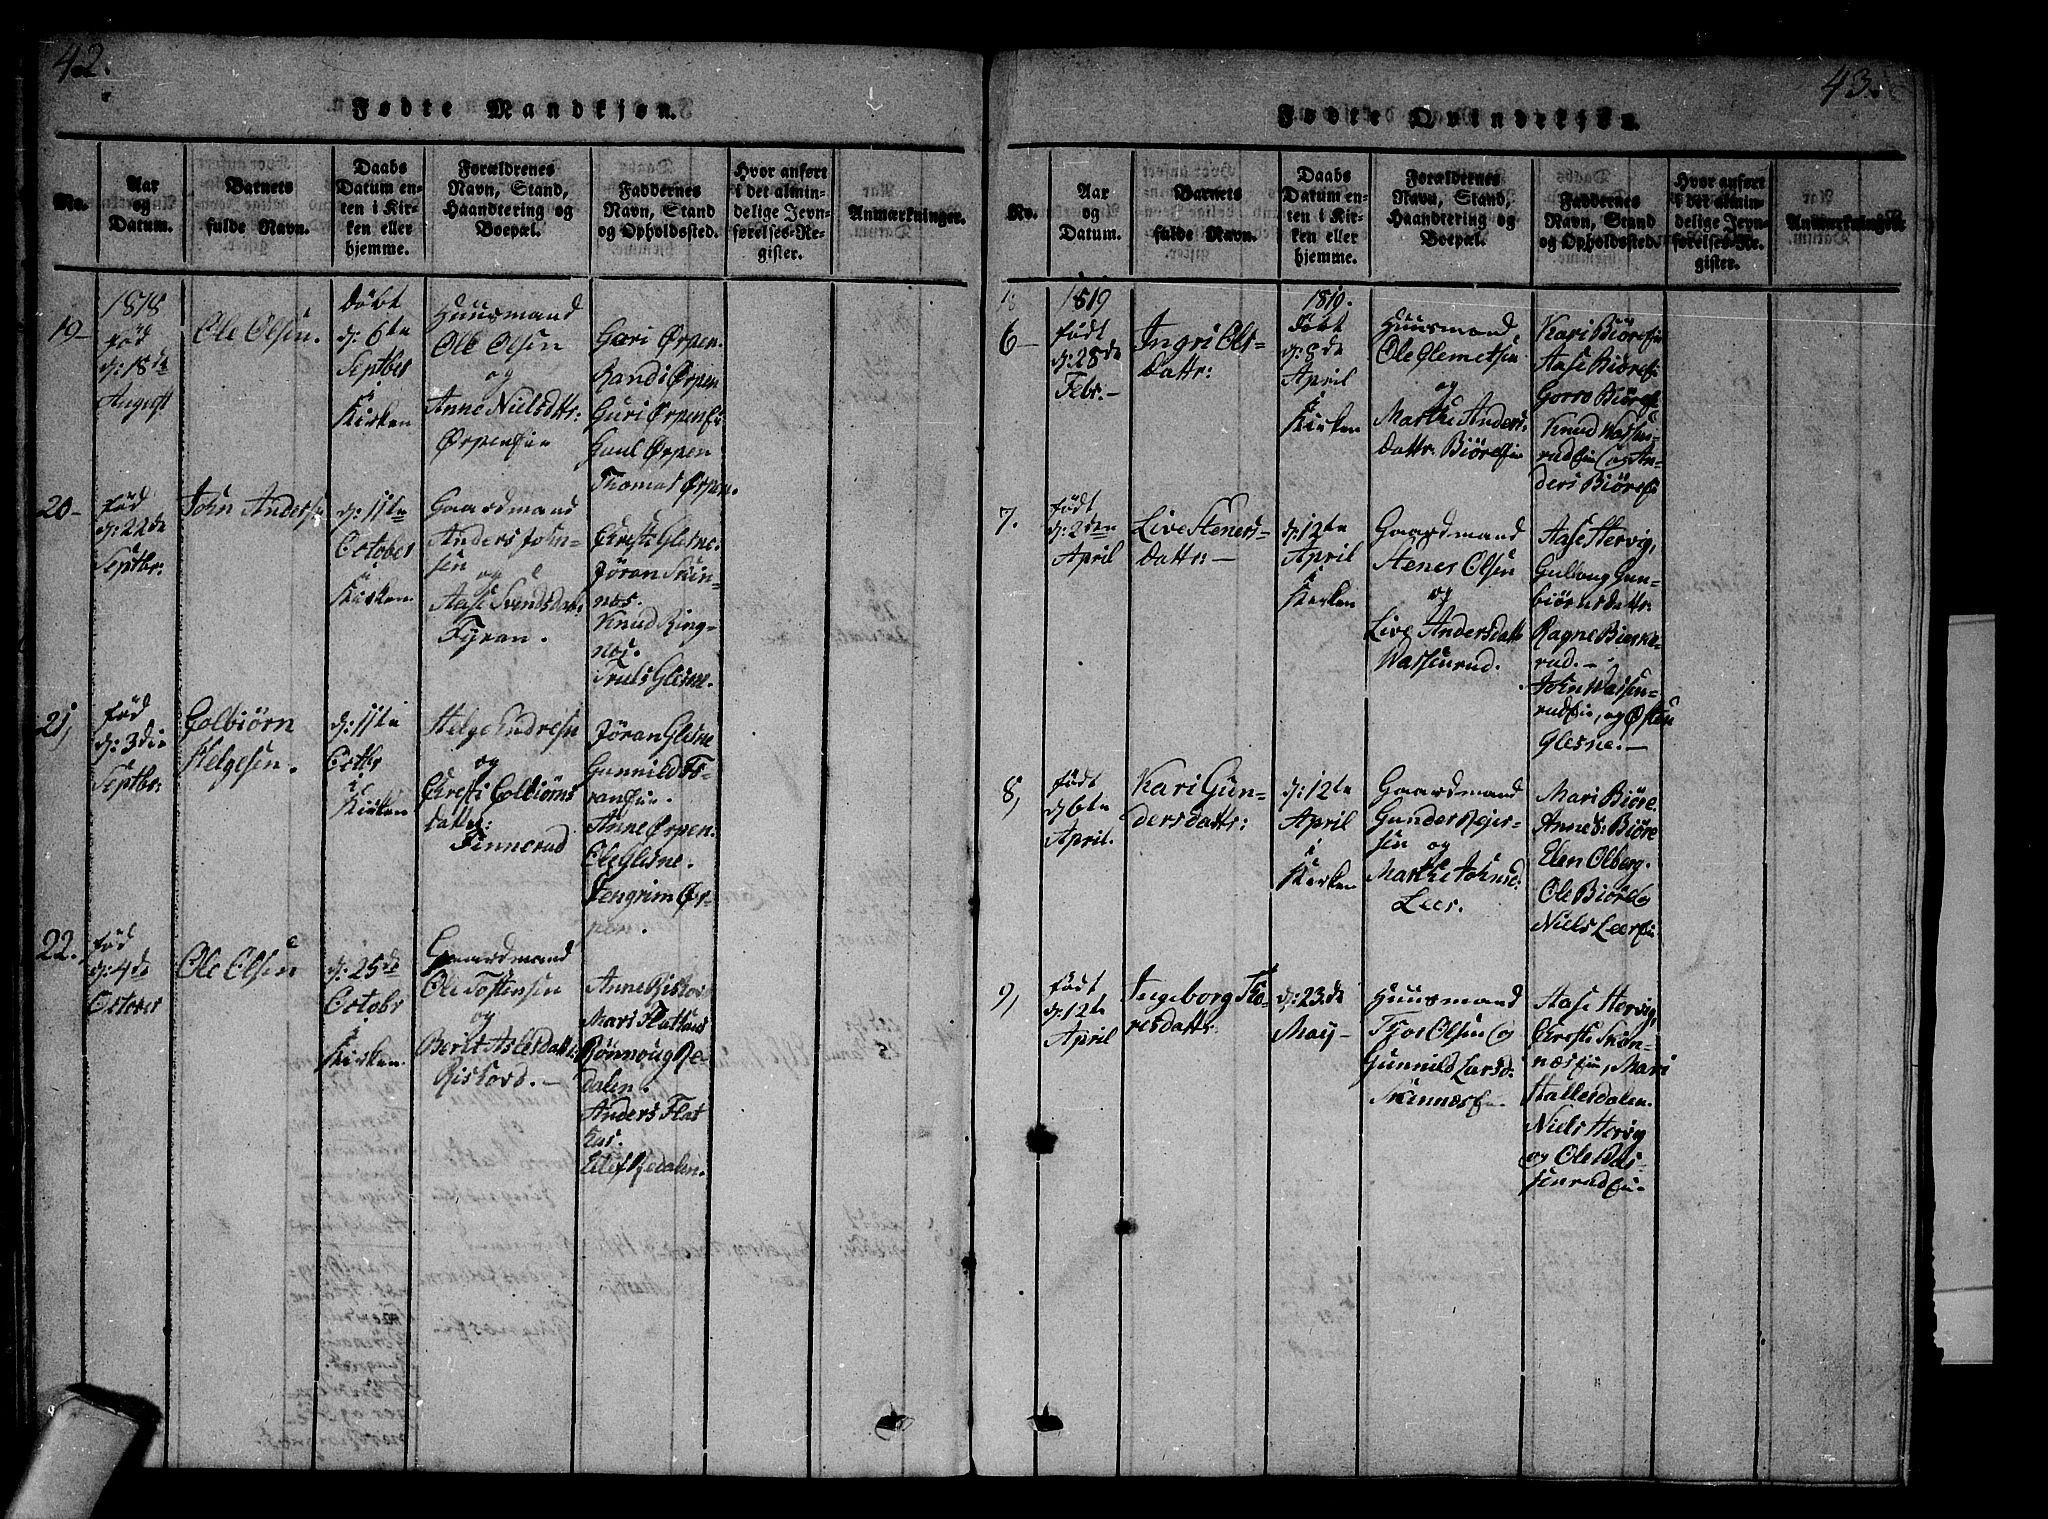 42.
Fødte Mandkjøn.
No.
Aar
og
Datum.
Barnets
fulde Navn.
Daabs
Datum en-
ten i Kir-
ken eller
hjemme.
Forældrenes
Navn, Stand,
Haandtering og
Boepæl.
Faddernes
Navn, Stand
og Opholdssted.
Hvor anført
i det almin-
delige Jevn-
førelses-Re-
gister.
Anmærkninger.
19-
1818
fød
d: 18de
August
Ole Olsen.
døbt
d: 6te
Septber
i
Kirken
Huusmand
Ole Olsen
og
Anne Nielsdttr:
Ørpenein
Gari Ørpen.
Randi Ørpen
Guri Ørpenein
Paul Ørpen
Thomas Ørpen.
20-
fød
d: 22de
Septbr:
John Andersen
d: 11te
October
i
Kirken.
Gaardmand
Anders John-
sen
og
Aase Svendsdatr
Fyran.
Chresti Glesne.
Jøran Skin-
næs.
Knud Ring-
næs.
Truls Glesne.
21,
fød
d: 3die
Septbr:
Colbiørn
Helgesen.
d: 11te
Octbr
i
Kirken
Helge Endresen
og
Chresti Colbiørns
datter:
Finnerud
Jøran Glesne
Gunnild Fy-
ranein.
Anne Ørpen.
Ole Glesne.
Stengrim Ør-
pen.
22.
fød
d: 4de
October
Ole Olsen
d: 25de
Octobr
i
Kirken.
Gaardmand
Ole Tostensen
og
Berit Aslesdatter
Ristord.-
Anne Ristord
Mari Flattnes
Rønnoug Re-
dalen.
Anders Flat
næs.
Elef Redalen.
43.
Fødte Qvindekjøn.
No.
Aar
og
Datum.
Barnets
fulde Navn.
Daabs
Datum en-
ten i Kir-
ken eller
hjemme.
Forældrenes
Navn, Stand,
Haandtering og
Boepæl.
Faddernes
Navn, Stand
og Opholdssted.
Hvor anført
i det almin-
delige Jevn-
førelses-Re-
gister.
Anmærkninger
6-
1819
født
d: 28de
Febr.-
Ingri Ols-
dattr:
1819.
døbt
d: 8de
April
i
Kirken
Huusmand
Ole Clemetsen
og
Marthe Anders-
dattr. Biøreein
Kari Biøreein
Aase Biøreein
Gorro Biøreein
Knud Wassen-
rudein og An-
ders Biøreein
7.
født
d: 2den
April
Live Steners-
dattr:-
d: 12te
April
i
Kirken
Gaardmand
Stener Olsen
og
Live Andersdatter
Wassenrud.
Aase Hervig,
Gulloug Gun-
biørnsdattr:
Ragne Bierke-
rud.-
John Wassen-
rudein, og Østen
Glesne.-
8,
født
d: 6te
April.
Kari Gun-
dersdattr:
d: 12te
April
i
Kirken
Gaardmand
Gunder Rejer-
sen
og
Marthe Johnsd:
Leer.
Mari Biøre
Anne S: Biøre
Elen Olberg.
Ole Biøre og
Niels Leerein.
9,
født
d: 12te
April
Ingeborg Tho-
resdattr:
d: 23.de
May-
Huusmand
Thor Olsen og
Gunnild Larsd:
Skinnesein
Aase Hervig,
Chresti Skin-
næsein, Mari
Hallesdalen.
Niels Hervig
og Ole Was-
senrudein-